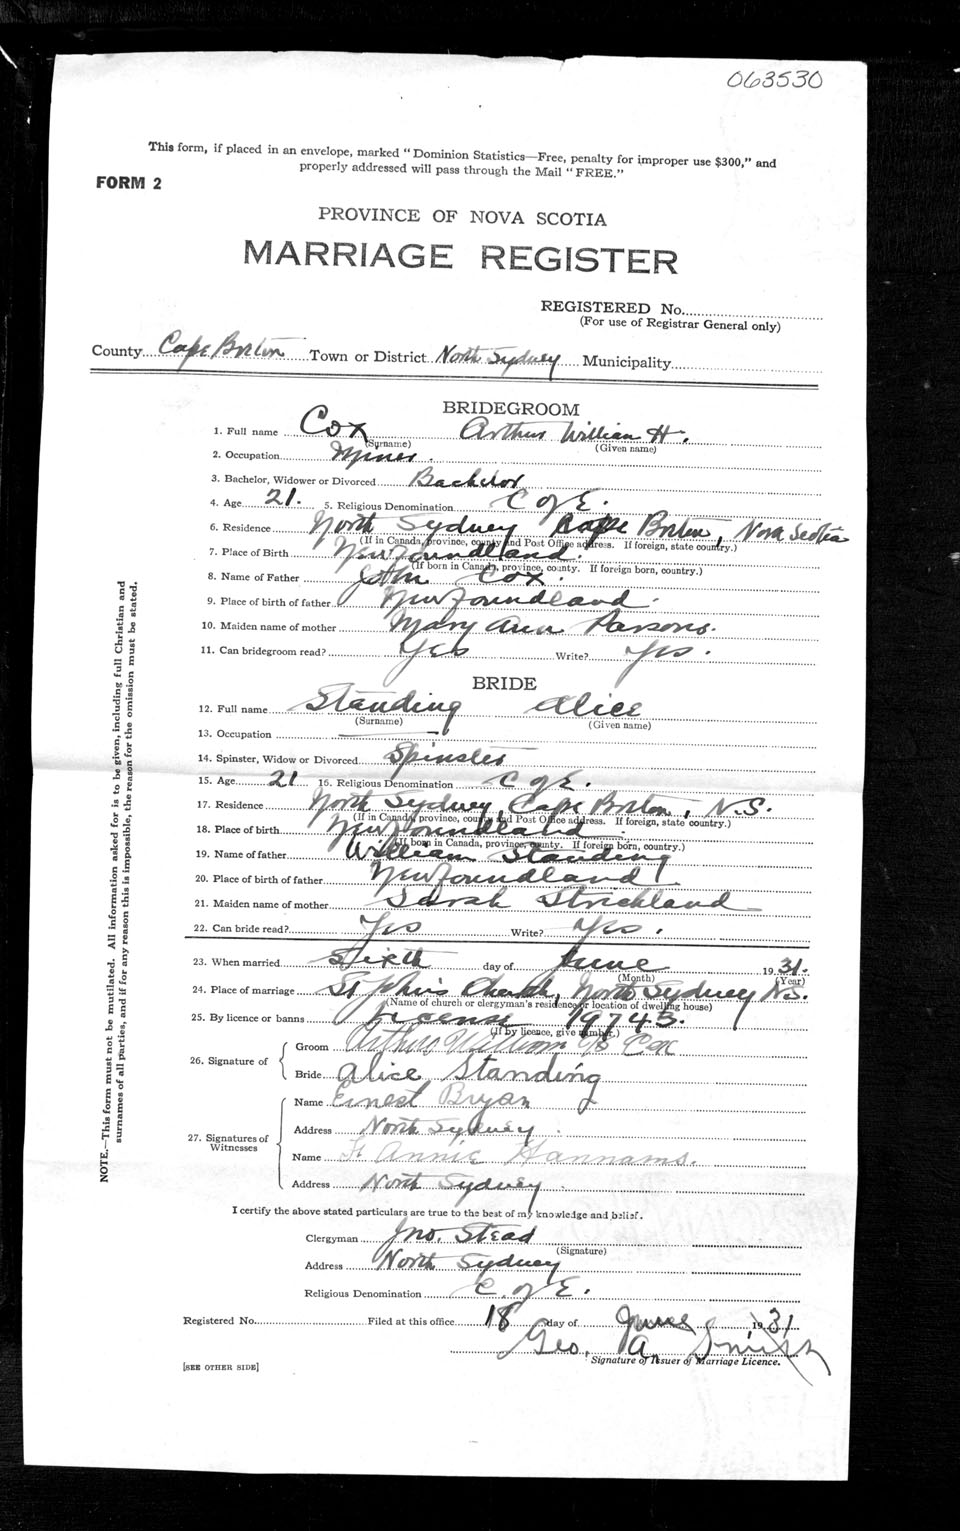 063530
This form, if placed in an envelope, marked "Dominion Statistics—Free, penalty for improper use $300," and
properly addressed will pass through the Mail "FREE."
FORM 2
PROVINCE OF NOVA SCOTIA
MARRIAGE REGISTER
REGISTERED No.
(For use of Registrar General only)
County Cape Breton Town or District North Sydney Municipality
BRIDEGROOM
1. Full name Cox Arthur William H.
(Surname) (Given name)
2. Occupation Miner.
3. Bachelor, Widower or Divorced Bachelor
4. Age 21. 5. Religious Denomination C of E.
6. Residence North Sydney Cape Breton, Nova Scotia
(If in Canada, province, county and Post Office address. If foreign, state country.)
7. Place of Birth Newfoundland.
(If born in Canada, province, county. If foreign born, country.)
8. Name of Father John Cox.
9. Place of birth of father Newfoundland.
10. Maiden name of mother Mary Ann Parsons.
11. Can bridegroom read? Yes Write? Yes.
BRIDE
12. Full name Standing Alice
(Surname) (Given name)
13. Occupation
14. Spinster, Widow or Divorced Spinster
15. Age 21 16. Religious Denomination C of E.
17. Residence North Sydney, Cape Breton, N.S.
(If in Canada, province, county and Post Office address. If foreign, state country.)
18. Place of birth Newfoundland
(If born in Canada, province, county. If foreign born, country.)
19. Name of father William Standing
20. Place of birth of father Newfoundland
21. Maiden name of mother Sarah Strickland
22. Can bride read? Yes Write? Yes.
23. When married Sixth day of June 1931.
(Month) (Year)
24. Place of marriage St John's Church, North Sydney N.S.
(Name of church or clergyman's residence or location of dwelling house)
25. By licence or banns License 19743.
(If by licence, give number.)
26. Signature of
Groom Arthur William Cox
Bride Alice Standing
27. Signatures of Witnesses
Name Ernest Bryan
Address North Sydney.
Name Annie Hannams.
Address North Sydney.
I certify the above stated particulars are true to the best of my knowledge and belief.
Clergyman Jno. Stead
(Signature)
Address North Sydney
Religious Denomination C. of E.
Registered No. Filed at this office 18 day of June 1931
Geo. A. Smith
Signature of Issuer of Marriage Licence.
[SEE OTHER SIDE]
NOTE.—This form must not be mutilated. All information asked for is to be given, including full Christian and
surnames of all parties, and if for any reason this is impossible, the reason for the omission must be stated.